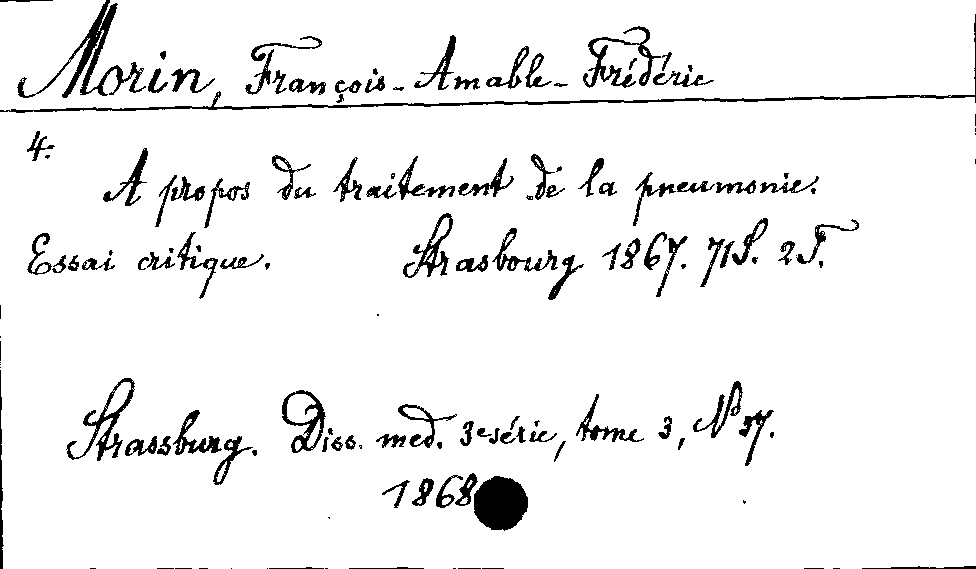 Morin, François-Amable-Frédéric
4:
A propos du traitement de la pneumonie.
Essai critique. Strasbourg 1867. 71 S. 2 T.
Strassburg. Diss. med. 3e série, tome 3, No 37.
1868